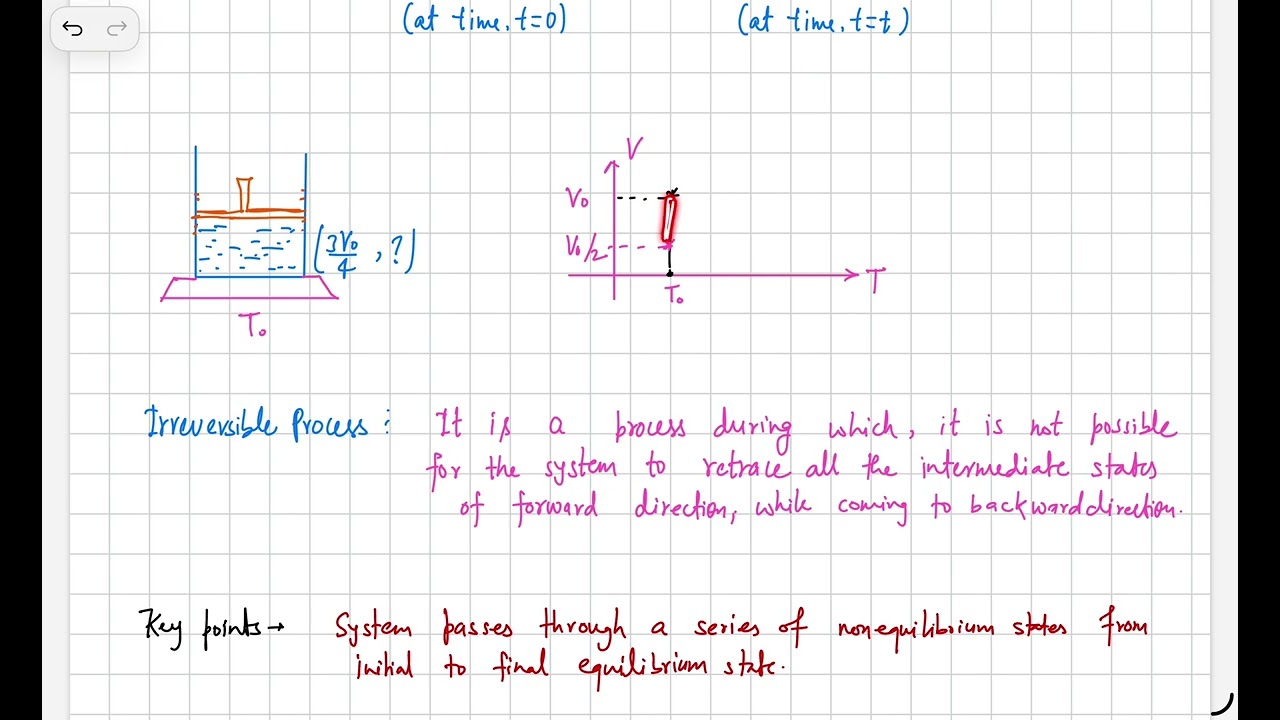 (at time, t=0) (at time, t=t)
V
V₀
(3V₀/4 , ?)
V₀/2
T
T₀
T₀
Irreversible Process : It is a process during which, it is not possible
for the system to retrace all the intermediate states
of forward direction, while coming to backward direction.
Key points → System passes through a series of nonequilibrium states from
initial to final equilibrium state.